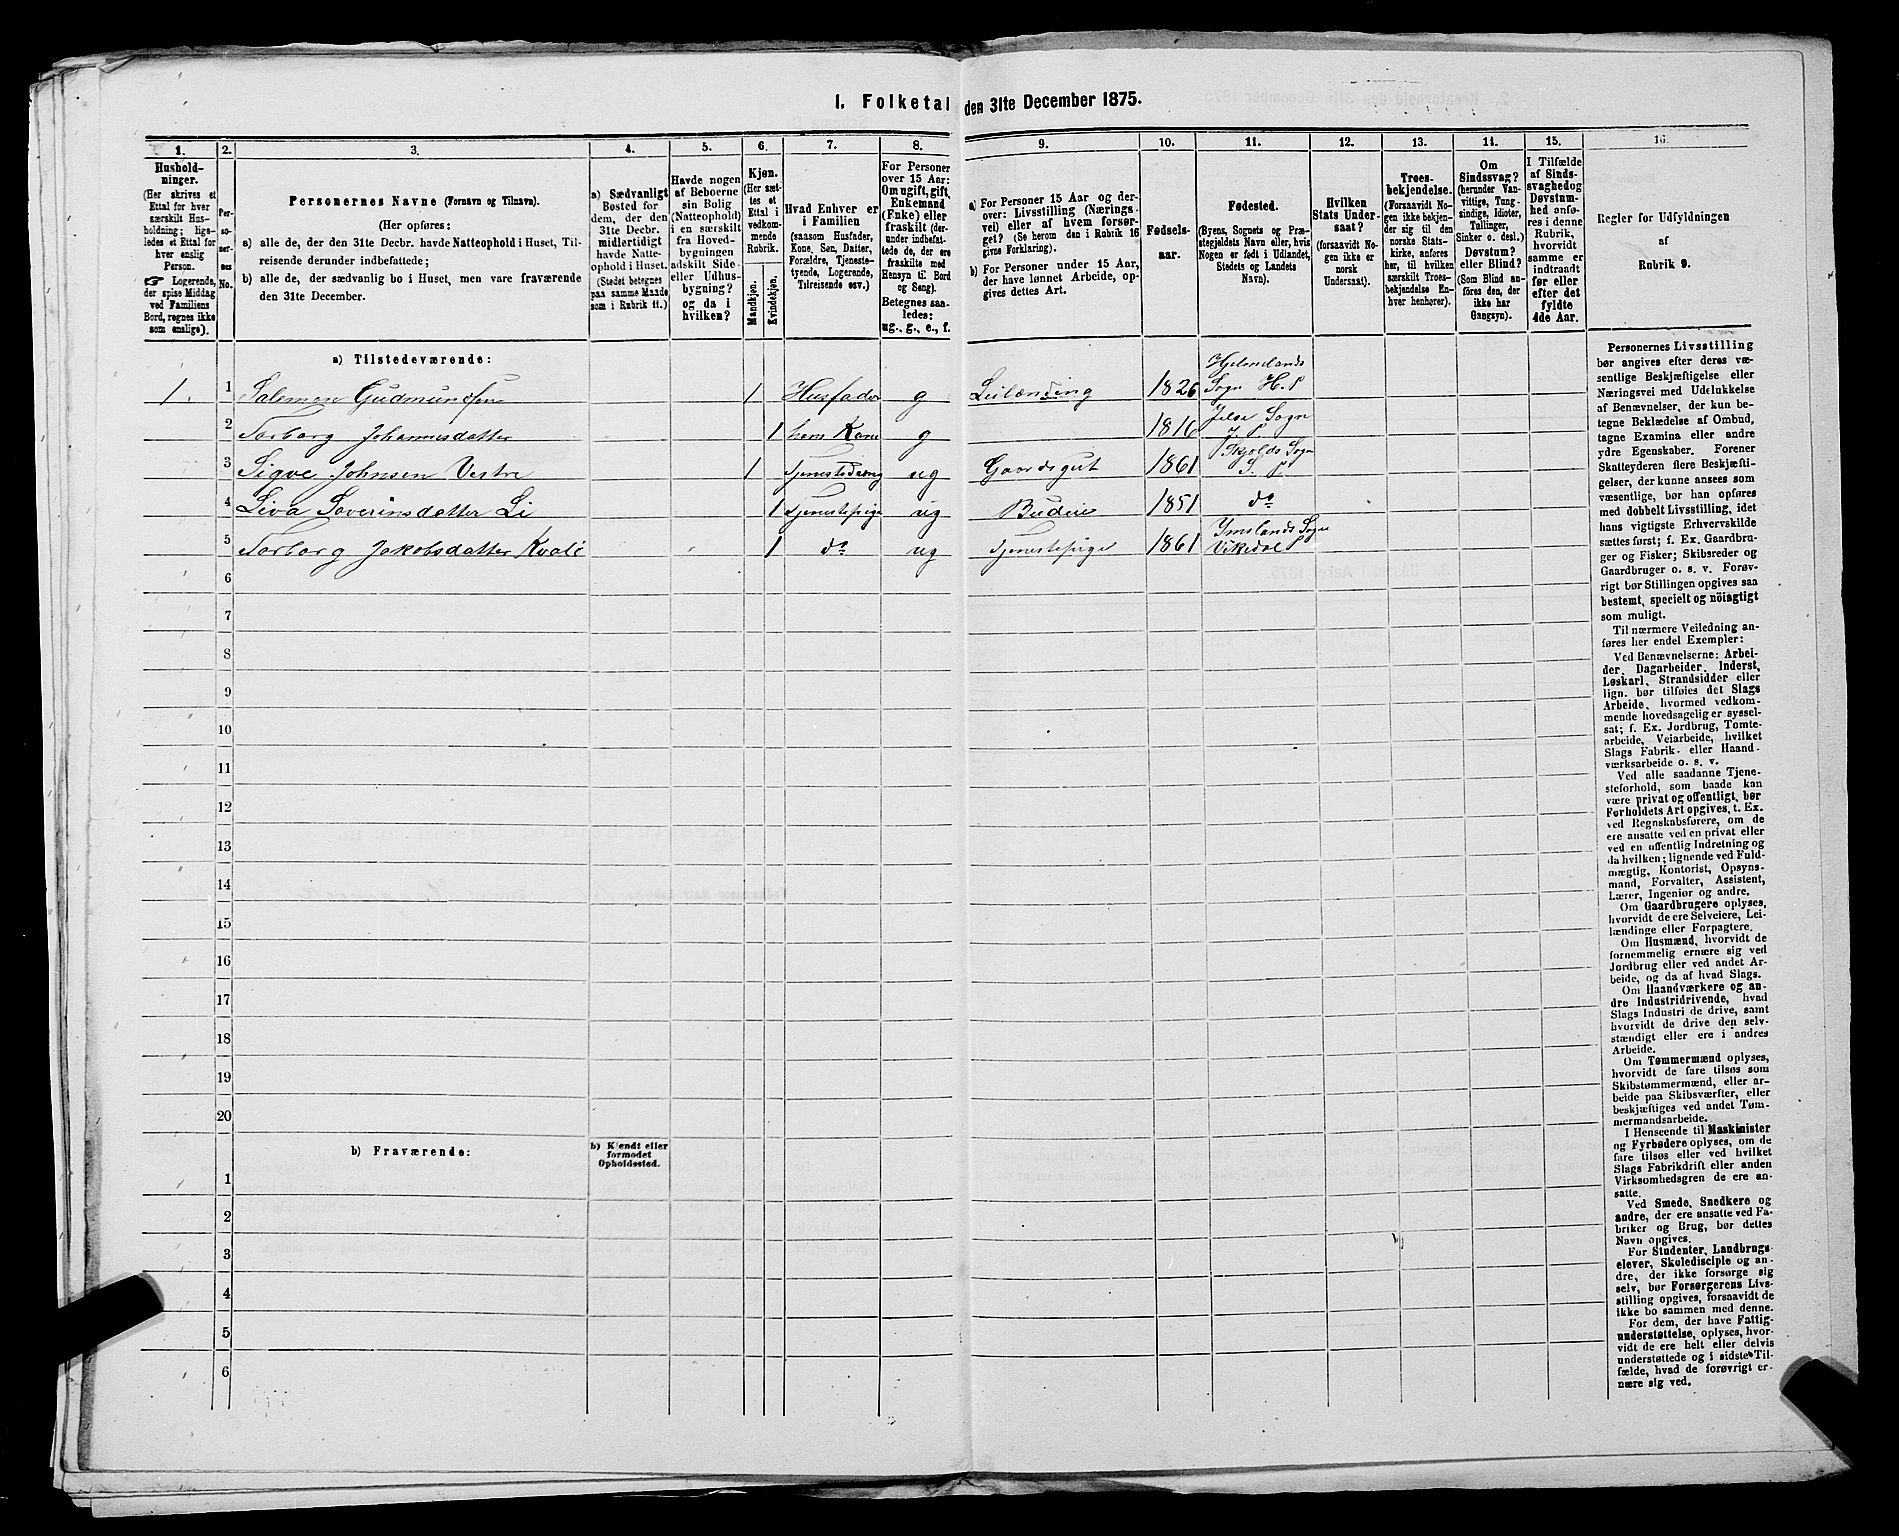 1. Folketal den 31te December 1875.
1. 2. 3. 4. 5. 6. 7. 8. 9. 10. 11. 12. 13. 14. 15. 16.
Hushold-
ninger.
(Her skrives et
Ettal for hver
særskilt Hus-
holdning; lige-
ledes et Ettal for
hver enslig
Person.
☞ Logerende,
der spise Middag
ved Familiens
Bord, regnes ikke
som enslige).
Per-
so-
ner-
nes
No.
Personernes Navne (Fornavn og Tilnavn).
(Her opføres:
a) alle de, der den 31te Decbr. havde Natteophold i Huset, Til-
reisende derunder indbefattede;
b) alle de, der sædvanlig bo i Huset, men vare fraværende
den 31te December.
a) Sædvanligt
Bosted for
dem, der den
31te Decbr.
midlertidigt
havde Natte-
ophold i Huset.
(Stedet betegnes
paa samme Maade
som i Rubrik 11.)
Havde nogen
af Beboerne
sin Bolig
(Natteophold)
i en særskilt
fra Hoved-
bygningen
adskilt Side-
eller Udhus-
bygning?
og da i
hvilken?
Kjøn.
(Her sæt-
tes et
Ettal i
vedkom-
mende
Rubrik.
Mandkjøn.
Kvindekjøn.
Hvad Enhver er
i Familien
(saasom Husfader,
Kone, Søn, Datter,
Forældre, Tjeneste-
tyende, Logerende,
Tilreisende osv.)
For Personer
over 15 Aar:
Om ugift, gift,
Enkemand
(Enke) eller
fraskilt (der-
under indbefat-
tede de, der ere
fraskilte med
Hensyn til Bord
og Seng).
Betegnes saa-
ledes:
ug., g., e., f.
a) For Personer 15 Aar og der-
over: Livsstilling (Nærings-
vei) eller af hvem forsør-
get? (Se herom den i Rubrik 16
givne Forklaring).
b) For Personer under 15 Aar,
der have lønnet Arbeide, op-
gives dettes Art.
Fødsels-
aar.
Fødested.
(Byens, Sognets og Præ-
stegjeldets Navn eller, hvis
Nogen er født i Udlandet,
Stedets og Landets
Navn).
Hvilken
Stats Under-
saat?
(forsaavidt No-
gen ikke er
norsk
Undersaat).
Troes-
bekjendelse.
(Forsaavidt No-
gen ikke bekjen-
der sig til den
norske Stats-
kirke, anføres
her, til hvilken
særskilt Troes-
bekjendelse En-
hver henhører).
Om
Sindssvag?
(herunder Van-
vittige, Tung-
sindige, Idioter,
Tullinger,
Sinker o. desl.)
Døvstum?
eller Blind?
(Som Blind an-
føres den, der
ikke har
Gangsyn).
I Tilfælde
af Sinds-
svaghed og
Døvstum-
hed anfø-
res i denne
Rubrik,
hvorvidt
samme er
indtraadt
før eller
efter det
fyldte
4de Aar.
Regler for Udfyldningen
af
Rubrik 9.
a) Tilstedeværende:
1. 1 Salemon Gudmundsen 1 Husfader g Leilænding 1826 Hjelmelands Sogn H. P
2 Torborg Johannesdatter 1 hans Kone g 1816 Jelse Sogn J. P.
3 Sigve Johnsen Vestre 1 Tjenestedreng ug Gaardsgut 1861 Skjolds Sogn S. P
4 Liva Soverinsdatter Li 1 Tjenestepige ug Budeie 1851 do
5 Torborg Jakobsdatter Kvali 1 do ug Tjenestepige 1861 Imslands Sogn Vikedal P
6
7
8
9
10
11
12
13
14
15
16
17
18
19
20
b) Fraværende:
b) Kjendt eller
formodet
Opholdssted.
1
2
3
4
5
6
Personernes Livsstilling
bør angives efter deres væ-
sentlige Beskjæftigelse eller
Næringsvei med Udelukkelse
af Benævnelser, der kun be-
tegne Beklædelse af Ombud,
tagne Examina eller andre
ydre Egenskaber. Forener
Skatteyderen flere Beskjæfti-
gelser, der kunne ansees som
væsentlige, bør han opføres
med dobbelt Livsstilling, idet
hans vigtigste Erhvervskilde
sættes først; f. Ex. Gaardbru-
ger og Fisker; Skibsreder og
Gaardbruger o. s. v. Forøv-
rigt bør Stillingen opgives saa
bestemt, specielt og nöiagtigt
som muligt.
Til nærmere Veiledning an-
føres her endel Exempler:
Ved Benævnelserne: Arbei-
der, Dagarbeider, Inderst,
Løskarl, Strandsidder eller
lign. bør tilføies det Slags
Arbeide, hvormed vedkom-
mende hovedsagelig er syssel-
sat; f. Ex. Jordbrug, Tomte-
arbeide, Veiarbeide, hvilket
Slags Fabrik- eller Haand-
værksarbeide o. s. v.
Ved alle saadanne Tjene-
steforhold, som baade kan
være privat og offentligt, bør
Forholdets Art opgives, t. Ex.
ved Regnskabsførere, om de
ere ansatte ved en privat eller
ved en offentlig Indretning og
da hvilken; lignende ved Fuld-
mægtig, Kontorist, Opsyns-
mand, Forvalter, Assistent,
Lærer, Ingeniør og andre.
Om Gaardbrugere oplyses,
hvorvidt de ere Selveiere, Lei-
lændinge eller Forpagtere.
Om Husmænd, hvorvidt de
fornemmelig ernære sig ved
Jordbrug eller ved andet Ar-
beide, og da af hvad Slags.
Om Haandværkere og an-
dre Industridrivende, hvad
Slags Industri de drive, samt
hvorvidt de drive den selv-
stændigt eller ere i andres
Arbeide.
Om Tømmermænd oplyses,
hvorvidt de fare tilsøs som
Skibstømmermænd, eller ar-
beide paa Skibsværfter, eller
beskjæftiges ved andet Tøm-
mermandsarbeide.
I Henseende til Maskinister
og Fyrbødere oplyses, om de
fare tilsøs eller ved hvilket
Slags Fabrikdrift eller anden
Virksomhedsgren de ere an-
satte.
Ved Smede, Snedkere og
andre, der ere ansatte ved Fa-
briker og Brug, bør dettes
Navn opgives.
For Studenter, Landbrugs-
elever, Skoledisciple og an-
dre, der ikke forsørge sig
selv, bør Forsørgerens Livs-
stilling opgives, forsaavidt de
ikke bo sammen med denne.
For dem, der have Fattig-
understøttelse, oplyses, hvor-
vidt de ere helt eller delvis
understøttede og i sidste Til-
fælde, hvad de forøvrigt er-
nære sig ved.